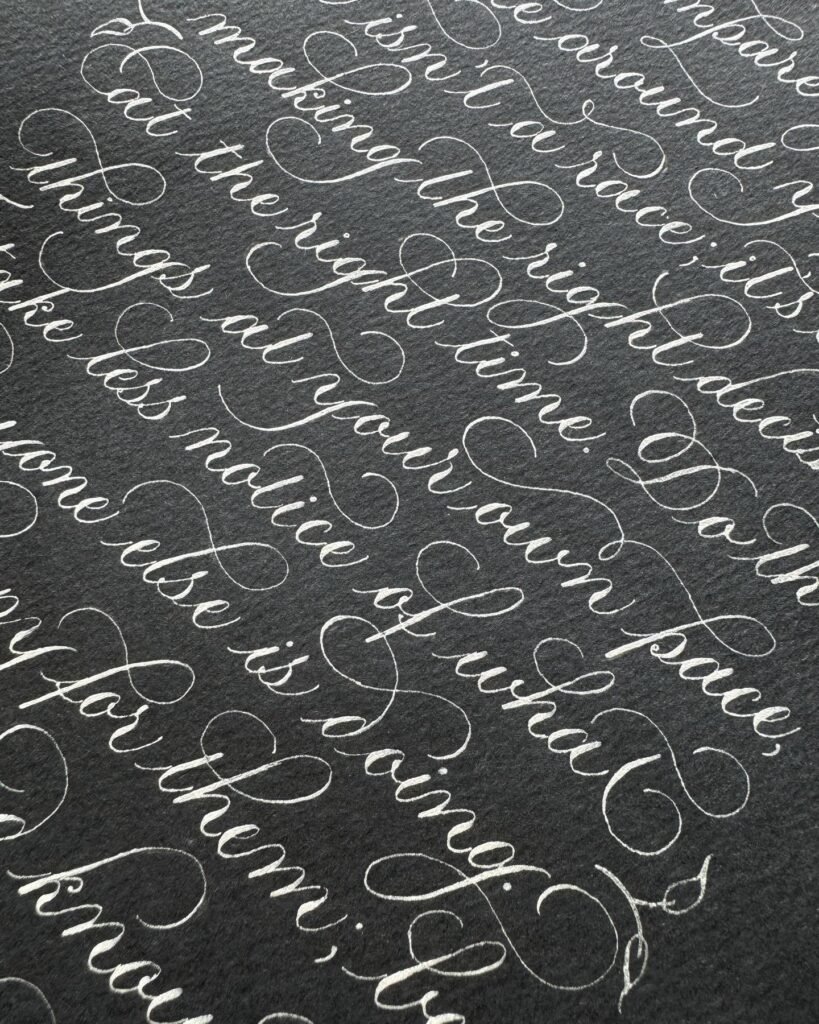 mpare
around y
isn't a race; it's
making the right decis
at the right time. Do th
things at your own pace,
take less notice of what
yone else is doing.
py for them; b
know